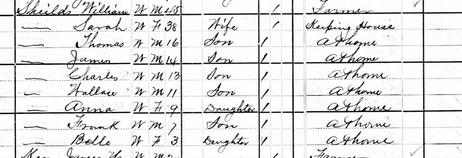 Shields William W M 45 Farmer
— Sarah W F 38 Wife 1 Keeping House
— Thomas W M 16 Son 1 At home
— James W M 14 Son 1 At home
— Charles W M 13 Son 1 At home
— Wallace W M 11 Son 1 At home
— Anna W F 9 Daughter 1 At home
— Frank W M 7 Son 1 At home
— Belle W F 3 Daughter 1 At home